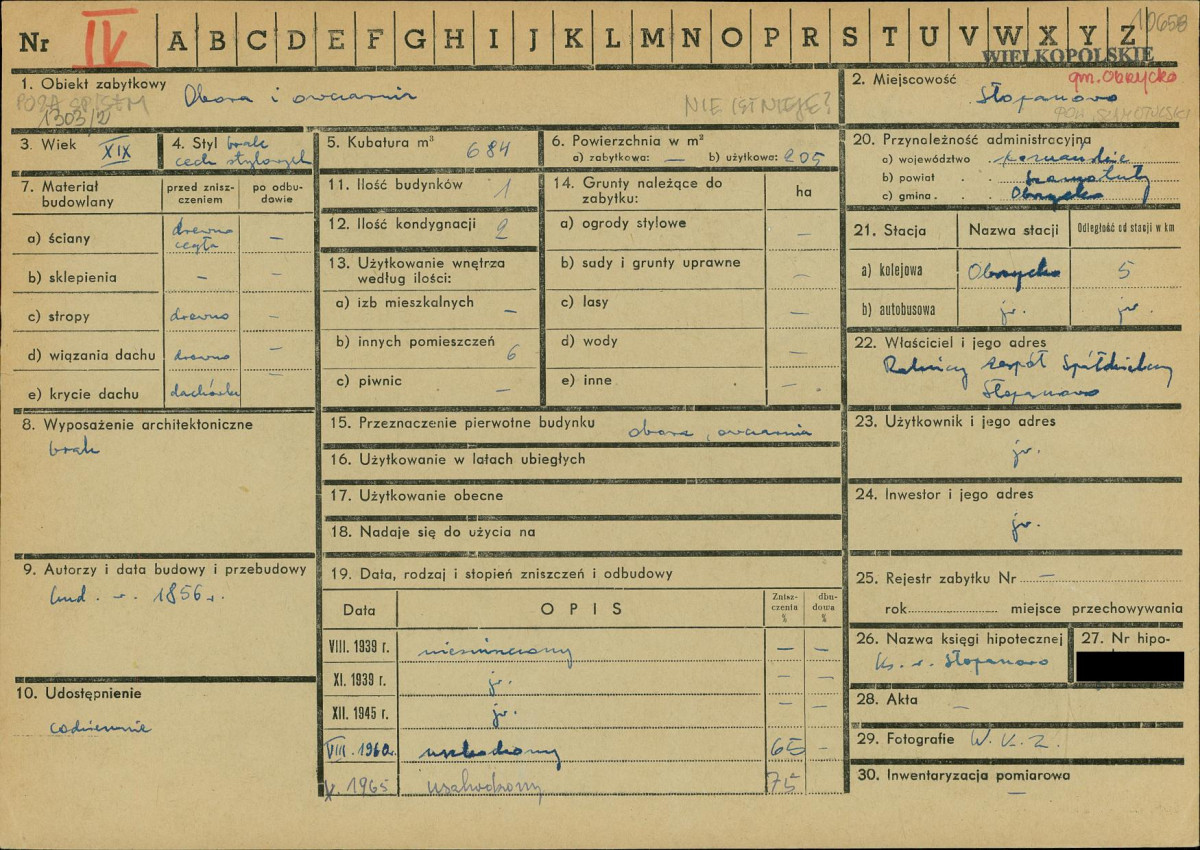 Nr IV A B C D E F G H I J K L M N O P R S T U V W X Y Z
10658
WIELKOPOLSKIE
1. Obiekt zabytkowy
Obora i owczarnia
POZA SPISEM
1303/2
NIE ISTNIEJE?
2. Miejscowość
gm. Obrzycko
Stopanowo
POW. SZAMOTULSKI
3. Wiek XIX
4. Styl brak
cech stylowych
5. Kubatura m³ 684
6. Powierzchnia w m²
a) zabytkowa: — b) użytkowa: 205
7. Materiał budowlany
przed zniszczeniem
po odbudowie
a) ściany drewno cegła —
b) sklepienia — —
c) stropy drewno —
d) wiązania dachu drewno —
e) krycie dachu dachówka —
8. Wyposażenie architektoniczne
brak
9. Autorzy i data budowy i przebudowy
bud. w r. 1856 r.
10. Udostępnienie
codziennie
11. Ilość budynków 1
12. Ilość kondygnacji 2
13. Użytkowanie wnętrza
według ilości:
a) izb mieszkalnych —
b) innych pomieszczeń 6
c) piwnic —
14. Grunty należące do
zabytku:
ha
a) ogrody stylowe —
b) sady i grunty uprawne —
c) lasy —
d) wody —
e) inne —
15. Przeznaczenie pierwotne budynku obora, owczarnia
16. Użytkowanie w latach ubiegłych
17. Użytkowanie obecne
18. Nadaje się do użycia na
19. Data, rodzaj i stopień zniszczeń i odbudowy
Data OPIS Zniszczenia % dbudowa %
VIII. 1939 r. niezniszczony — —
XI. 1939 r. jw. — —
XII. 1945 r. jw. — —
VIII. 1960 r. uszkodzony 65 —
X. 1965 uszkodzony 75
20. Przynależność administracyjna
a) województwo poznańskie
b) powiat . . Szamotuły
c) gmina . . . Obrzycko
21. Stacja Nazwa stacji Odległość od stacji w km
a) kolejowa Obrzycko 5
b) autobusowa jw. jw.
22. Właściciel i jego adres
Rolniczy Zespół Spółdzielczy
Stopanowo
23. Użytkownik i jego adres
jw.
24. Inwestor i jego adres
jw.
25. Rejestr zabytku Nr —
rok miejsce przechowywania
26. Nazwa księgi hipotecznej
Ks. w. Stopanowo
27. Nr hipo-
28. Akta —
29. Fotografie W.K.Z.
30. Inwentaryzacja pomiarowa
—